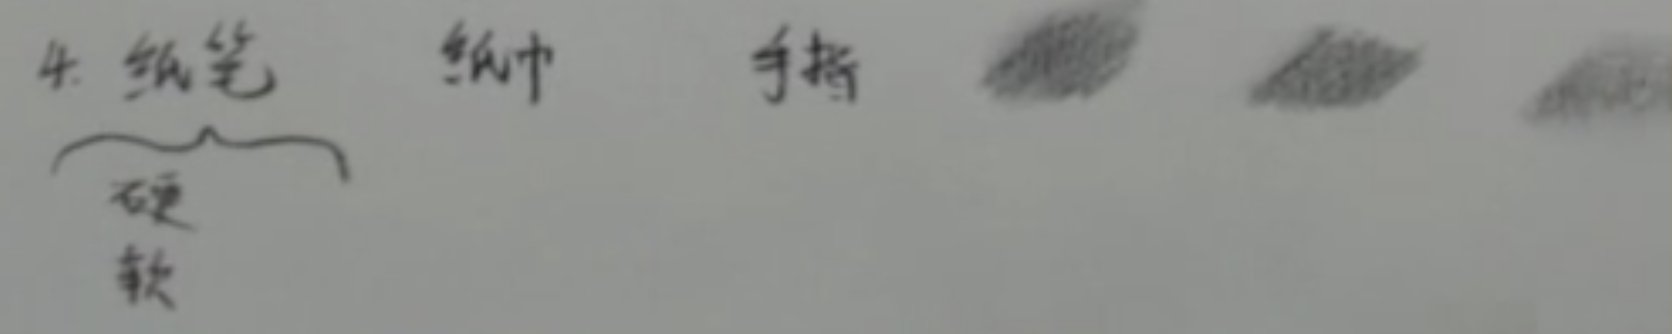 4. 纸笔 纸巾 手指
硬
软